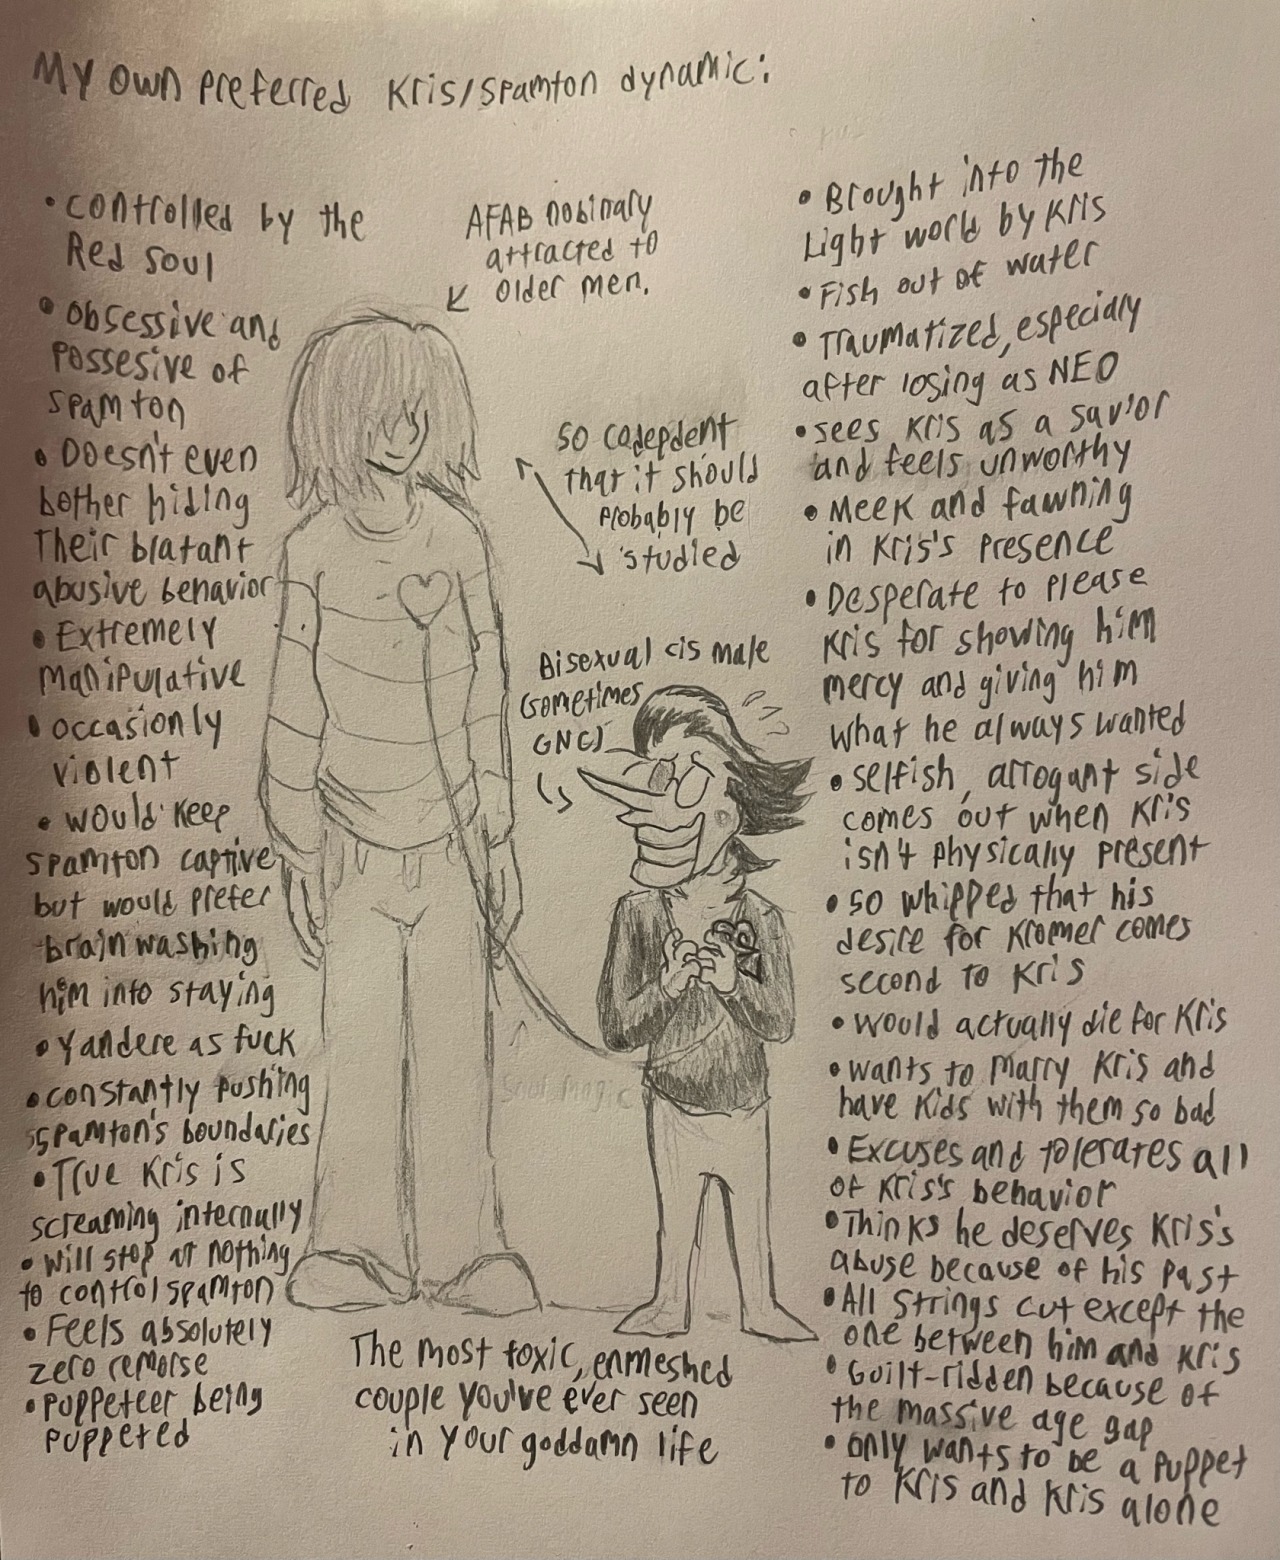 My own preferred Kris/Spamton dynamic:
• controlled by the
Red Soul
• obsessive and
possesive of
spamton
• Doesn't even
bother hiding
Their blatant
abusive behavior
• Extremely
manipulative
• occasionly
violent
• would keep
spamton captive
but would prefer
brainwashing
him into staying
• yandere as fuck
• constantly pushing
spamton's boundaries
• True Kris is
screaming internally
• will stop at nothing
to control spamton
• Feels absolutely
zero remorse
• puppeteer being
puppeted
AFAB nobinary
attracted to
older men.
so codepdent
that it should
probably be
studied
Bisexual cis male
(sometimes
GNC)
soul magic
The most toxic, enmeshed
couple you've ever seen
in your goddamn life
• Brought into the
Light world by Kris
• Fish out of water
• Traumatized, especially
after losing as NEO
• sees Kris as a savior
and feels unworthy
• Meek and fawning
in Kris's presence
• Desperate to please
Kris for showing him
mercy and giving him
what he always wanted
• selfish, arrogant side
comes out when Kris
isn't physically present
• so whipped that his
desire for Kromer comes
second to Kris
• would actually die for Kris
• wants to marry Kris and
have kids with them so bad
• Excuses and tolerates all
of Kris's behavior
• Thinks he deserves Kris's
abuse because of his past
• All strings cut except the
one between him and Kris
• Guilt-ridden because of
the massive age gap
• only wants to be a puppet
to Kris and Kris alone